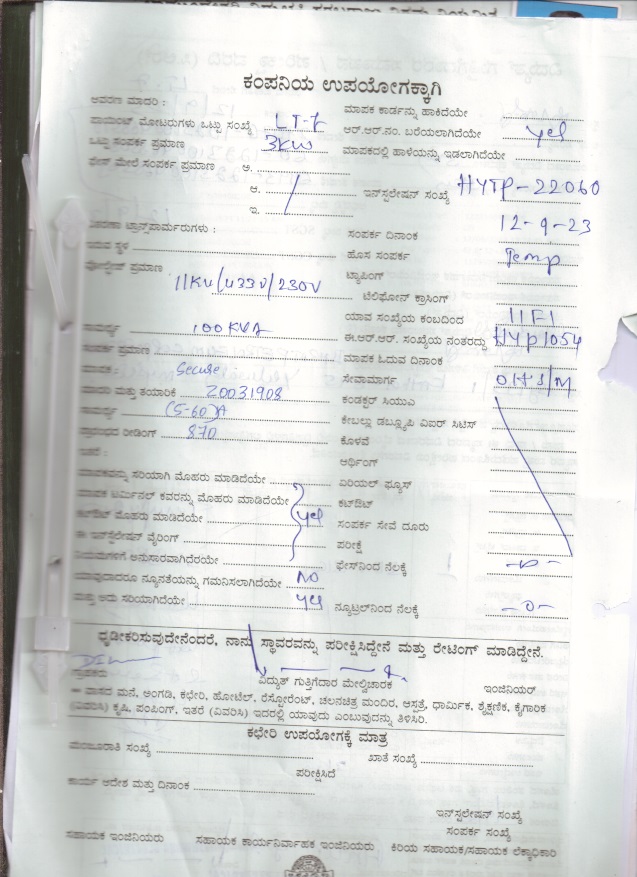 ಕಂಪನಿಯ ಉಪಯೋಗಕ್ಕಾಗಿ
ಆವರಣ ಮಾದರಿ : ಮಾಪಕ ಕಾರ್ಡನ್ನು ಹಾಕಿದೆಯೇ
ಪಾಯಿಂಟ್ ಮೋಟರುಗಳು ಒಟ್ಟು ಸಂಖ್ಯೆ LT-7 ಆರ್.ಆರ್.ನಂ. ಬರೆಯಲಾಗಿದೆಯೇ yes
ಒಟ್ಟು ಸಂಪರ್ಕ ಪ್ರಮಾಣ 3KW ಮಾಪಕದಲ್ಲಿ ಹಾಳೆಯನ್ನು ಇಡಲಾಗಿದೆಯೇ
ಫೇಸ್ ಮೇಲೆ ಸಂಪರ್ಕ ಪ್ರಮಾಣ ಅ.
ಆ. ಇನ್‌ಸ್ಟಲೇಷನ್ ಸಂಖ್ಯೆ HYTP-22060
ಇ.
ಸಂಪರ್ಕ ದಿನಾಂಕ 12-9-23
ಟ್ರಾನ್ಸ್‌ಫಾರ್ಮರುಗಳು :
ಸ್ಥಳ ಹೊಸ ಸಂಪರ್ಕ Temp
ಪ್ರಮಾಣ 11KV/433V/230V ಟ್ಯಾಪಿಂಗ್
ಟೆಲಿಫೋನ್ ಕ್ರಾಸಿಂಗ್
ಯಾವ ಸಂಖ್ಯೆಯ ಕಂಬದಿಂದ
100KVA ಈ.ಆರ್.ಆರ್. ಸಂಖ್ಯೆಯ ನಂತರದ್ದು HYP1054
ಸಂಪರ್ಕ ಪ್ರಮಾಣ ಮಾಪಕ ಓದುವ ದಿನಾಂಕ
Secure ಸೇವಾಮಾರ್ಗ OHS/M
ಮತ್ತು ತಯಾರಿಕೆ 20031908 ಕಂಡಕ್ಟರ್ ಸಿಯುಎ
(5-60)A ಕೇಬಲ್ಲು ಡಬ್ಲ್ಯೂಪಿ ಏಐರ್ ಸಿಟಿಸ್
ರೀಡಿಂಗ್ 870 ಕೊಳವೆ
ಇತರೆ : ಅರ್ಥಿಂಗ್
ಮಾಪಕವನ್ನು ಸರಿಯಾಗಿ ಮೊಹರು ಮಾಡಿದೆಯೇ ಏರಿಯಲ್ ಫ್ಯೂಸ್
ಮಾಪಕ ಟರ್ಮಿನಲ್ ಕವರನ್ನು ಮೊಹರು ಮಾಡಿದೆಯೇ ಕಟ್‌ಔಟ್
ಕಟ್‌ಔಟ್ ಮೊಹರು ಮಾಡಿದೆಯೇ yes ಸಂಪರ್ಕ ಸೇವೆ ದೂರು
ಈ ಇನ್‌ಸ್ಟಲೇಷನ್ ವೈರಿಂಗ್ ಪರೀಕ್ಷೆ
ನಿಯಮಗಳಿಗೆ ಅನುಸಾರವಾಗಿದೆಯೇ ಫೇಸ್‌ನಿಂದ ನೆಲಕ್ಕೆ -0-
ಯಾವುದಾದರೂ ನ್ಯೂನತೆಯನ್ನು ಗಮನಿಸಲಾಗಿದೆಯೇ NO
ಮತ್ತು ಅದು ಸರಿಯಾಗಿದೆಯೇ yes ನ್ಯೂಟ್ರಲ್‌ನಿಂದ ನೆಲಕ್ಕೆ -0-
ಧೃಡೀಕರಿಸುವುದೇನೆಂದರೆ, ನಾನು ಸ್ಥಾವರವನ್ನು ಪರೀಕ್ಷಿಸಿದ್ದೇನೆ ಮತ್ತು ರೇಟಿಂಗ್ ಮಾಡಿದ್ದೇನೆ.
ಗ್ರಾಹಕರು ವಿದ್ಯುತ್ ಗುತ್ತಿಗೆದಾರ ಮೇಲ್ವಿಚಾರಕ ಇಂಜಿನಿಯರ್
ವಾಸದ ಮನೆ, ಅಂಗಡಿ, ಕಛೇರಿ, ಹೋಟೆಲ್, ರೆಸ್ಟೋರೆಂಟ್, ಚಲನಚಿತ್ರ ಮಂದಿರ, ಆಸ್ಪತ್ರೆ, ಧಾರ್ಮಿಕ, ಶೈಕ್ಷಣಿಕ, ಕೈಗಾರಿಕ
(ವಿವರಿಸಿ) ಕೃಷಿ, ಪಂಪಿಂಗ್, ಇತರೆ (ವಿವರಿಸಿ) ಇದರಲ್ಲಿ ಯಾವುದು ಎಂಬುವುದನ್ನು ತಿಳಿಸಿರಿ.
ಕಛೇರಿ ಉಪಯೋಗಕ್ಕೆ ಮಾತ್ರ
ಮಂಜೂರಾತಿ ಸಂಖ್ಯೆ ಖಾತೆ ಸಂಖ್ಯೆ
ಪರೀಕ್ಷಿಸಿದೆ
ಕಾರ್ಯ ಆದೇಶ ಮತ್ತು ದಿನಾಂಕ
ಇನ್‌ಸ್ಟಲೇಷನ್ ಸಂಖ್ಯೆ
ಸಂಪರ್ಕ ಸಂಖ್ಯೆ
ಸಹಾಯಕ ಇಂಜಿನಿಯರು ಸಹಾಯಕ ಕಾರ್ಯನಿರ್ವಾಹಕ ಇಂಜಿನಿಯರು ಕಿರಿಯ ಸಹಾಯಕ/ಸಹಾಯಕ ಲೆಕ್ಕಾಧಿಕಾರಿ